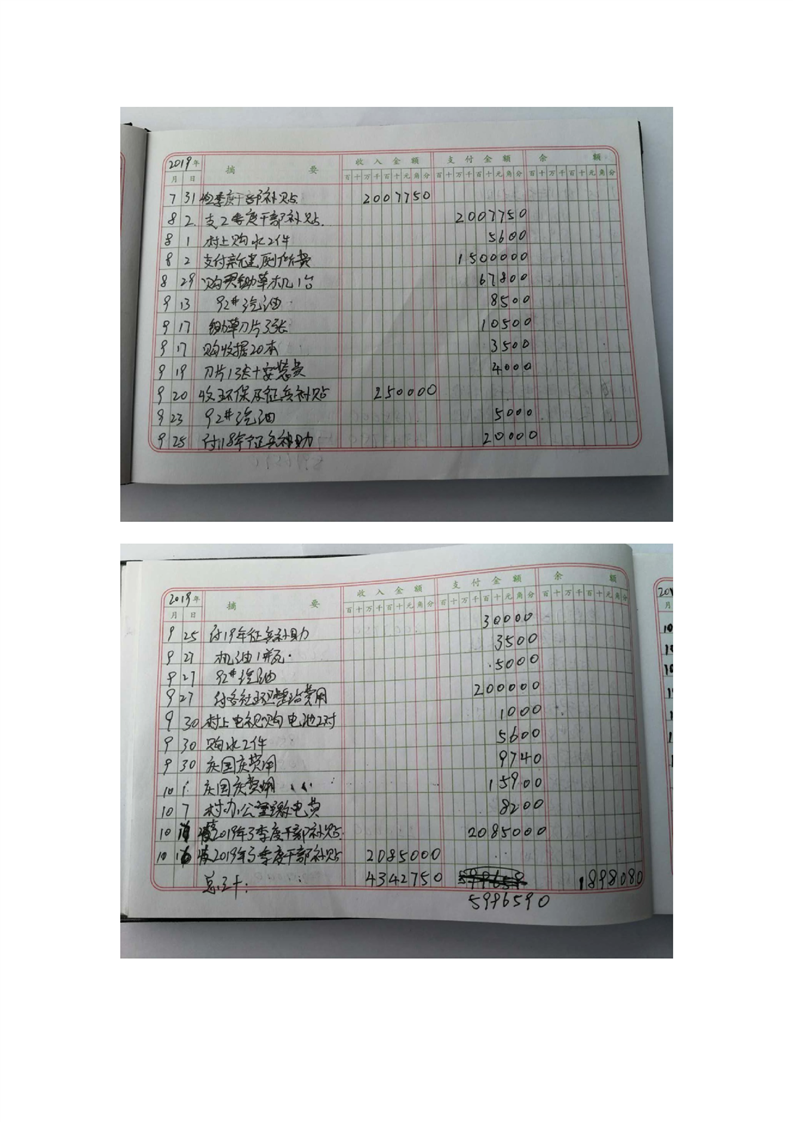 2019年 摘要 收入金额 支付金额 余额
月 日 百十万千百十元角分 百十万千百十元角分 百十万千百十元角分
7 31 收季度干部补贴 2007750
8 2 支2季度干部补贴 2007750
8 1 村上购水2件 5600
8 2 支付新建厕所费 1500000
8 29 购买锄草机1台 67800
9 13 92#汽油 8500
9 17 锄草刀片3张 10500
9 17 购收据20本 3500
9 19 刀片13张+安装费 4000
9 20 收环保及征兵补贴 250000
9 23 92#汽油 5000
9 25 付18年征兵补助 20000
2019年 摘要 收入金额 支付金额 余额
月 日 百十万千百十元角分 百十万千百十元角分 百十万千百十元角分
9 25 付19年征兵补助 30000
9 27 机油1瓶 3500
9 27 92#汽油 5000
9 27 付各社环境整治费用 200000
9 30 村上电视购电池2对 1000
9 30 购水2件 5600
9 30 庆国庆费用 9740
10 1 庆国庆费用 15900
10 7 村办公室缴电费 8200
10 16 2019年3季度干部补贴 2085000
10 16 收2019年3季度干部补贴 2085000
总计: 4342750 1898080
5996590